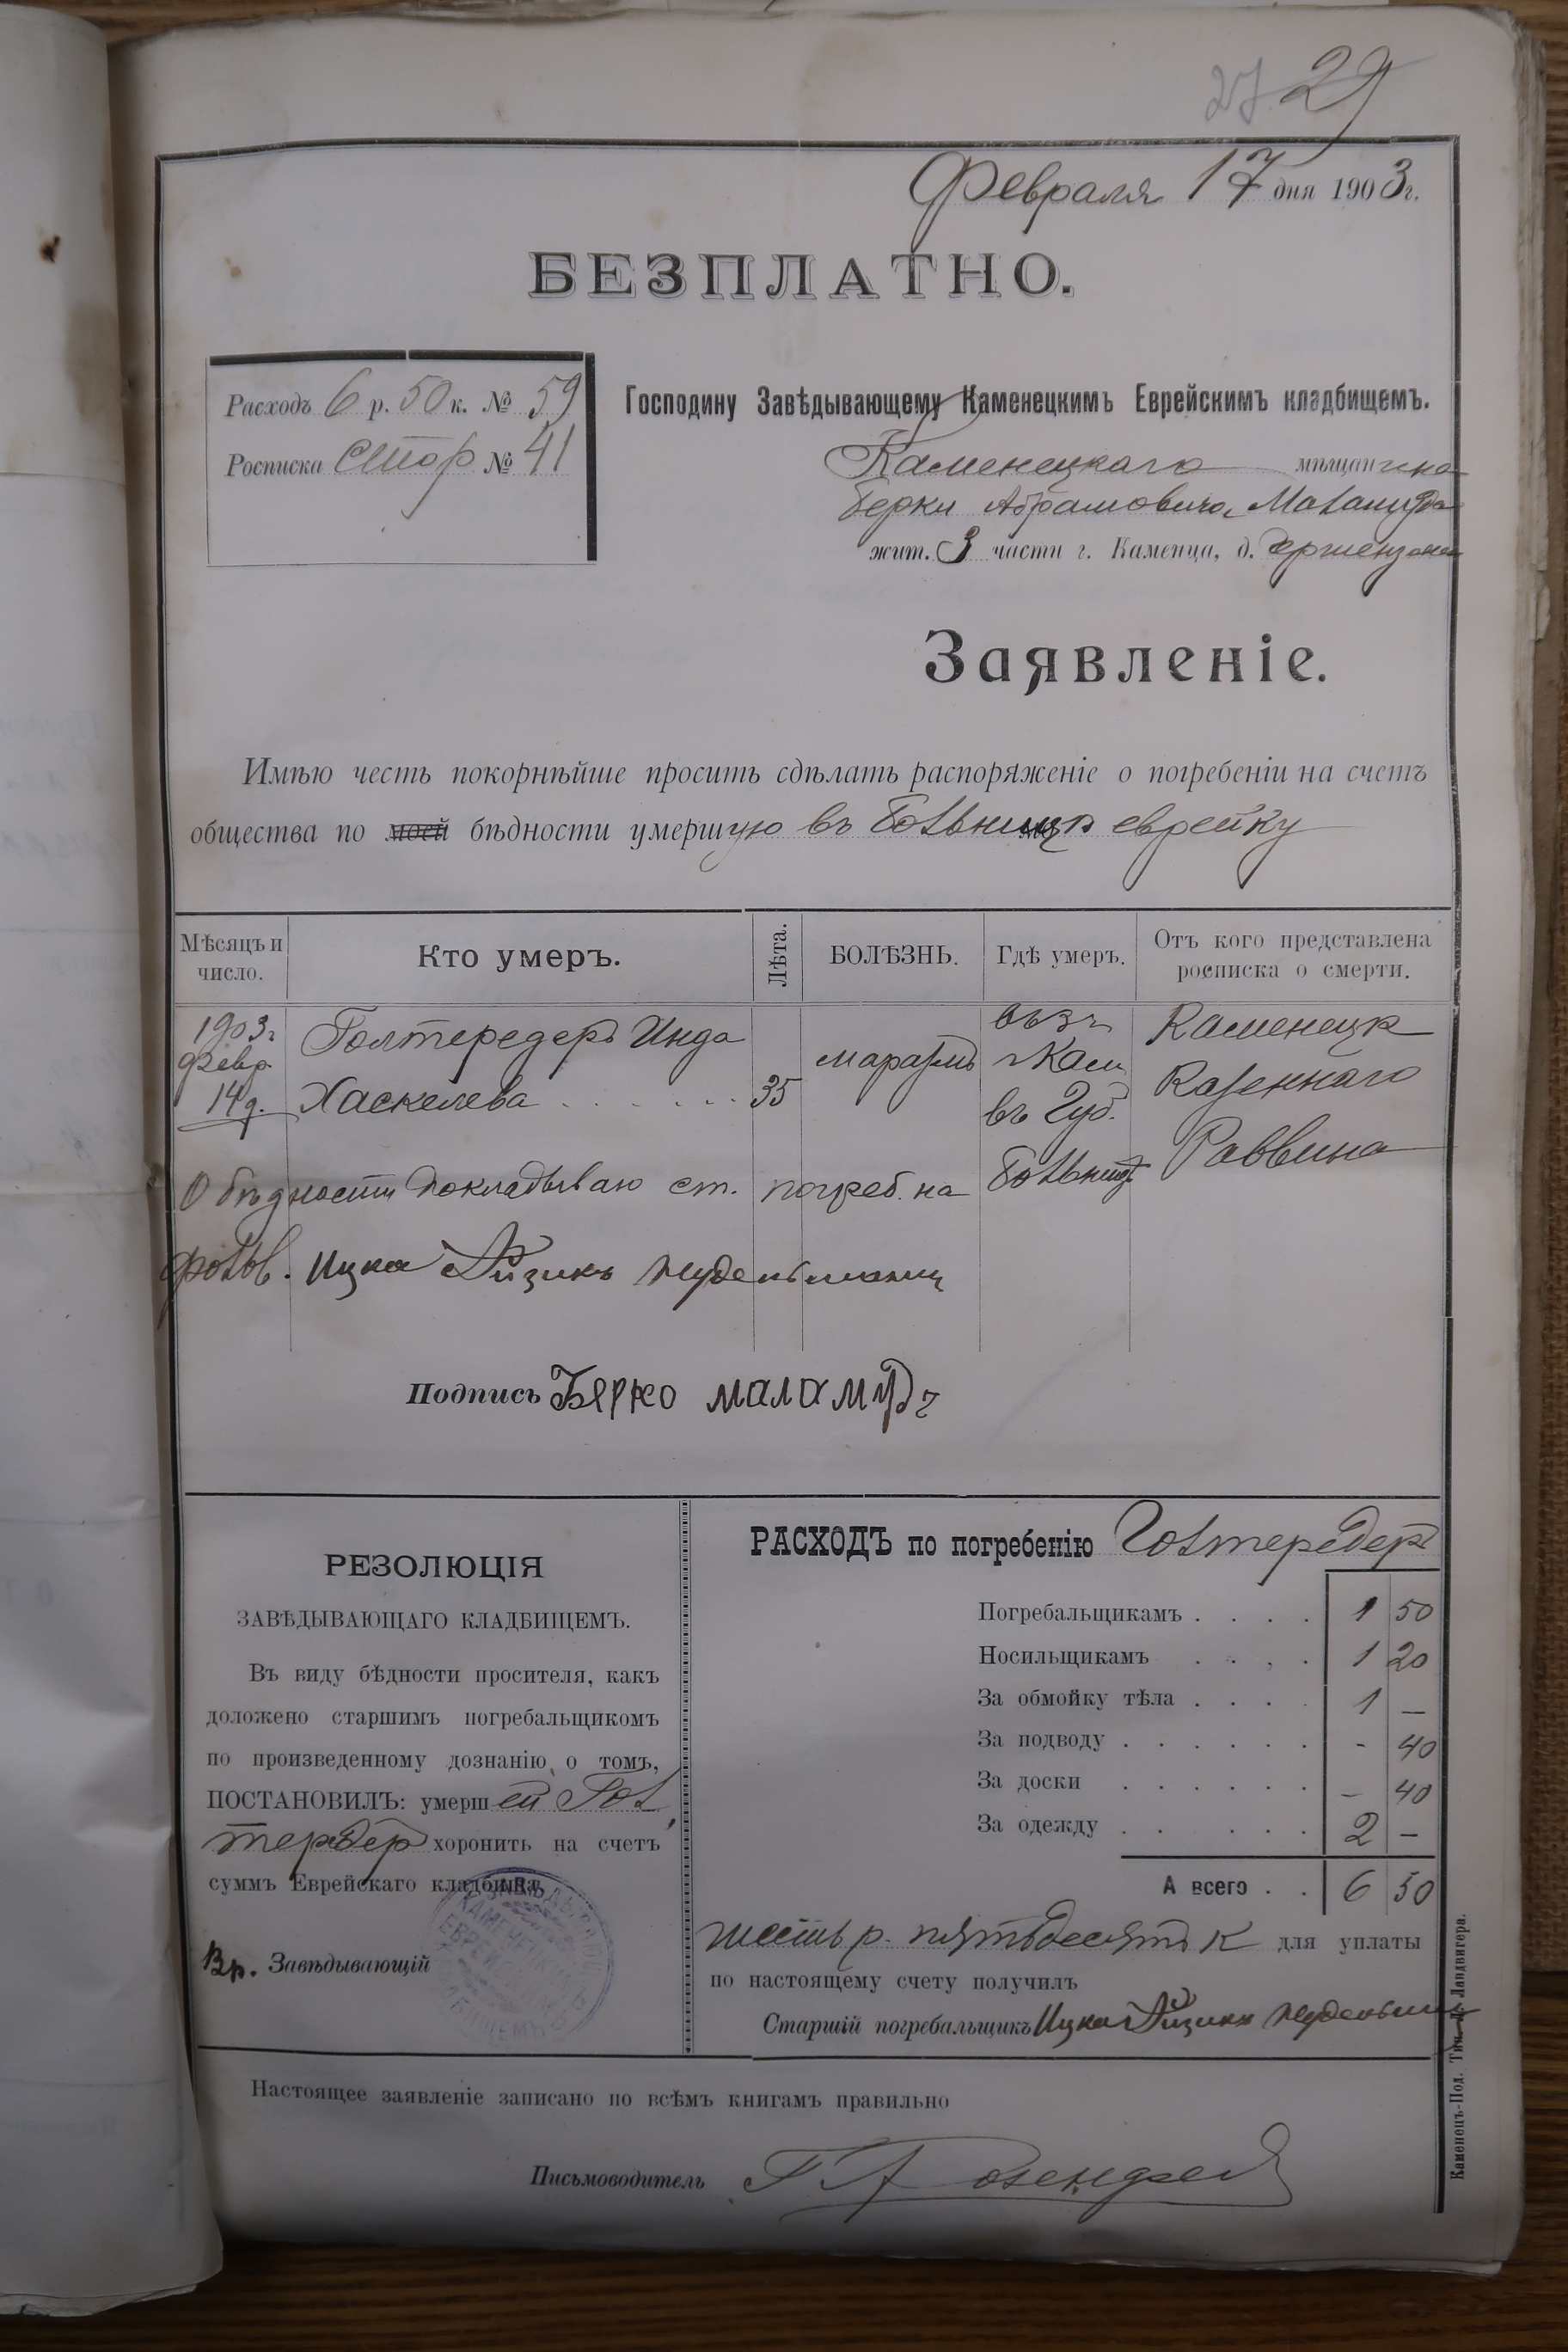 27 29
Февраля 17 дня 1903 г.
БЕЗПЛАТНО.
Расходъ 6 р. 50 к. № 59
Росписка стор № 41
Господину Завѣдывающему Каменецкимъ Еврейскимъ кладбищемъ.
Каменецкаго мѣщанина
Берки Абрамовича Маламуда
жит. 3 части г. Каменца, д.
Заявленіе.
Имѣю честь покорнѣйше просить сдѣлать распоряженіе о погребеніи на счетъ
общества по моей бѣдности умершую въ больницѣ еврейку
Мѣсяцъ и число. Кто умеръ. Лѣта. БОЛѢЗНЬ. Гдѣ умеръ. Отъ кого представлена росписка о смерти.
1903 г. Голтередеръ Инда Каменецк
февр. маразмъ г Кам Казеннаго
14 д. Хаскелева . . . . . . 35 въ Губ. Раввина
О бѣдности докладываю ст. погреб. на больниц
Ицка Айзикъ
Подпись Бярко маламудъ
РЕЗОЛЮЦІЯ
ЗАВѢДЫВАЮЩАГО КЛАДБИЩЕМЪ.
Въ виду бѣдности просителя, какъ
доложено старшимъ погребальщикомъ
по произведенному дознанію о томъ,
ПОСТАНОВИЛЪ: умершей Гол
тердер хоронить на счетъ
суммъ Еврейскаго кладбища.
Вр. Завѣдывающій
РАСХОДЪ по погребенію Голтередеръ
Погребальщикамъ . . . . 1 50
Носильщикамъ . . . . 1 20
За обмойку тѣла . . . . 1 —
За подводу . . . . . . - 40
За доски . . . . . . - 40
За одежду . . . . . . 2 —
А всего . . 6 50
шесть р. пятьдесятъ к для уплаты
по настоящему счету получилъ
Старшій погребальщикъ Ицка Айзикъ
Настоящее заявленіе записано по всѣмъ книгамъ правильно
Письмоводитель
Каменецъ-Под. Тип. Л. Ландвигера.